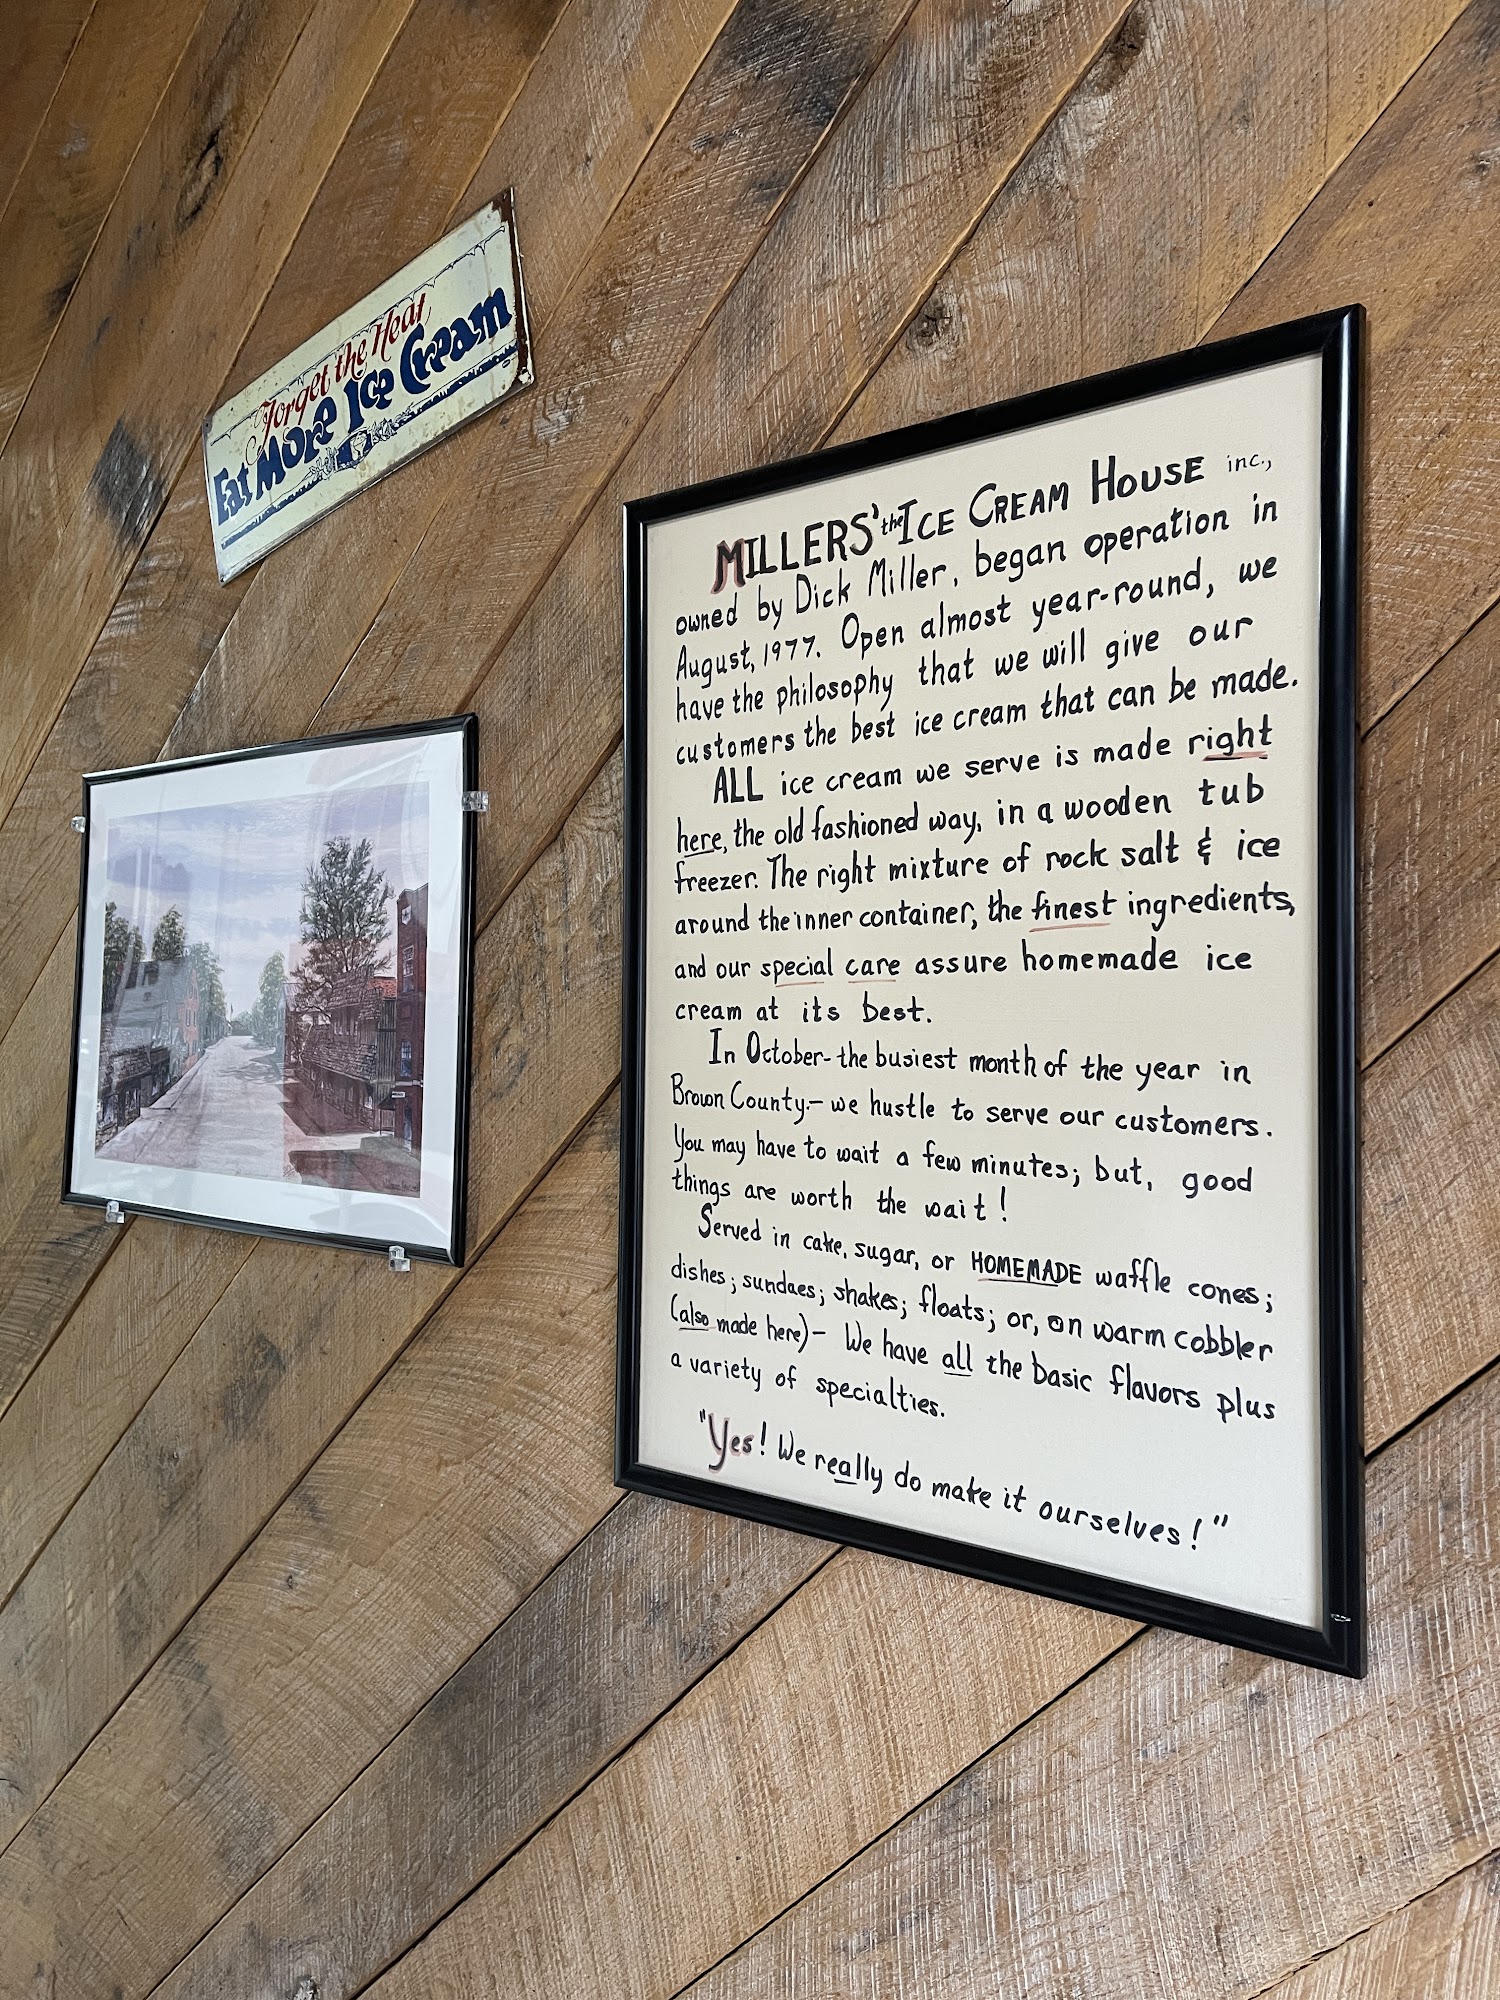 Forget the Heat
Eat More Ice Cream
MILLERS' the ICE CREAM HOUSE inc.,
owned by Dick Miller, began operation in
August, 1977. Open almost year-round, we
have the philosophy that we will give our
customers the best ice cream that can be made.
ALL ice cream we serve is made right
here, the old fashioned way, in a wooden tub
freezer. The right mixture of rock salt & ice
around the inner container, the finest ingredients,
and our special care assure homemade ice
cream at its best.
In October- the busiest month of the year in
Brown County- we hustle to serve our customers.
You may have to wait a few minutes; but, good
things are worth the wait!
Served in cake, sugar, or HOMEMADE waffle cones;
dishes; sundaes; shakes; floats; or, on warm cobbler
(also made here)- We have all the basic flavors plus
a variety of specialties.
"Yes! We really do make it ourselves!"